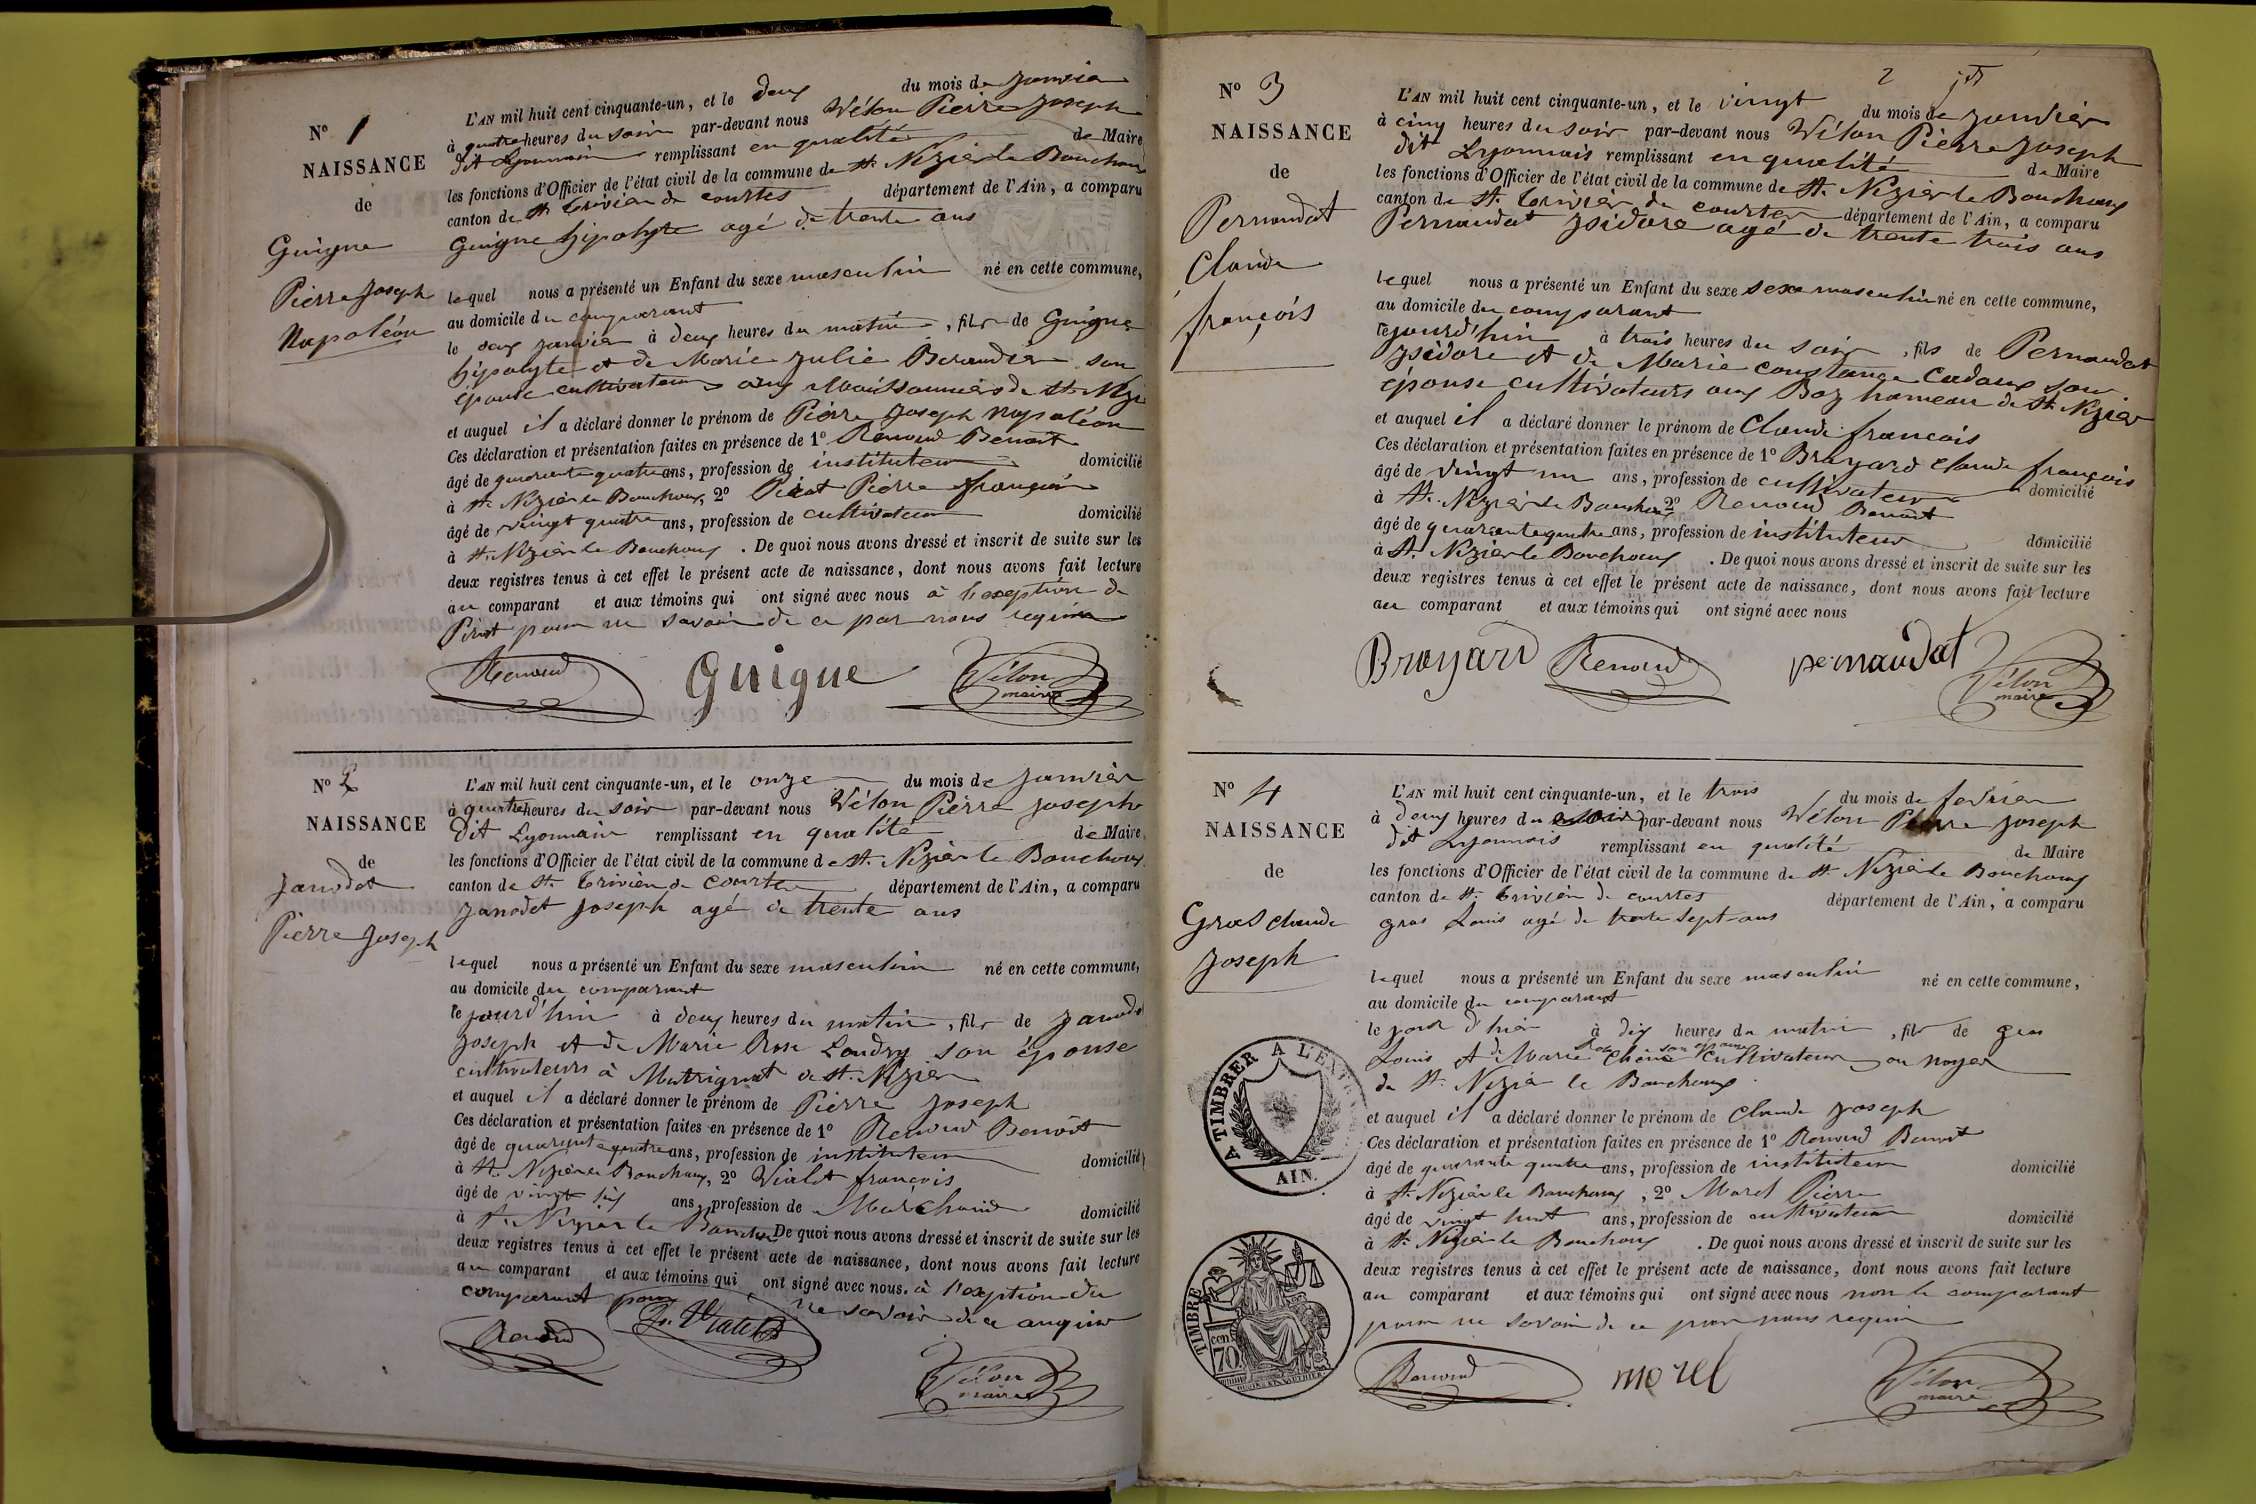 N° 1
NAISSANCE
de
Guigne
Pierre Joseph
Napoléon
L'AN mil huit cent cinquante-un, et le deux du mois de janvier
à quatre heures du soir par-devant nous Vélon Pierre Joseph
dit Lyonnais remplissant en qualité de Maire
les fonctions d'Officier de l'état civil de la commune de St. Nizier le Bouchoux
canton de St. Trivier de courtes département de l'Ain, a comparu
Guigne hipolyte agé de trente ans
lequel nous a présenté un Enfant du sexe masculin né en cette commune,
au domicile du comparant
le deux janvier à deux heures du matin, fils de Guigne
hipolyte et de Marie Julie Beraudier son
épouse cultivateurs aux Moissonniers de St. Nizier
et auquel il a déclaré donner le prénom de Pierre Joseph Napoléon
Ces déclaration et présentation faites en présence de 1° Renoud Benoit
âgé de quarante quatre ans, profession de instituteur domicilié
à St. Nizier le Bouchoux, 2° Pirat Pierre françois
âgé de vingt quatre ans, profession de cultivateur domicilié
à St. Nizier le Bouchoux. De quoi nous avons dressé et inscrit de suite sur les
deux registres tenus à cet effet le présent acte de naissance, dont nous avons fait lecture
au comparant et aux témoins qui ont signé avec nous à l'exception de
Pirat pour ne savoir de ce par nous requis
Renoud Guigue Vélon
maire
N° 2
NAISSANCE
de
Janodet
Pierre Joseph
L'AN mil huit cent cinquante-un, et le onze du mois de janvier
à quatre heures du soir par-devant nous Vélon Pierre Joseph
dit Lyonnais remplissant en qualité de Maire
les fonctions d'Officier de l'état civil de la commune de St. Nizier le Bouchoux
canton de St. Trivier de courtes département de l'Ain, a comparu
Janodet Joseph agé de trente ans
lequel nous a présenté un Enfant du sexe masculin né en cette commune,
au domicile du comparant
le jourd'hui à deux heures du matin, fils de Janodet
Joseph et de Marie Rose Loudry son épouse
cultivateurs à Matrignat de St. Nizier
et auquel il a déclaré donner le prénom de Pierre Joseph
Ces déclaration et présentation faites en présence de 1° Renoud Benoit
âgé de quarante quatre ans, profession de instituteur domicilié
à St. Nizier le Bouchoux, 2° Vialet françois
âgé de vingt six ans, profession de Marchand domicilié
à St. Nizier le Bouchoux De quoi nous avons dressé et inscrit de suite sur les
deux registres tenus à cet effet le présent acte de naissance, dont nous avons fait lecture
au comparant et aux témoins qui ont signé avec nous. à l'exception du
comparant pour ne savoir de ce enquis
Renoud Vialet
Vélon
maire
2
N° 3
NAISSANCE
de
Pernaudat
Claude
françois
L'AN mil huit cent cinquante-un, et le vingt du mois de janvier
à cinq heures du soir par-devant nous Vélon Pierre Joseph
dit Lyonnais remplissant en qualité de Maire
les fonctions d'Officier de l'état civil de la commune de St. Nizier le Bouchoux
canton de St. Trivier de courtes département de l'Ain, a comparu
Pernaudat Jsidore agé de trente trois ans
lequel nous a présenté un Enfant du sexe sexe masculin né en cette commune,
au domicile du comparant
le jourd'hui à trois heures du soir, fils de Pernaudat
Jsidore et de Marie constance Cadoux son
épouse cultivateurs aux Boz hameau de St. Nizier
et auquel il a déclaré donner le prénom de Claude françois
Ces déclaration et présentation faites en présence de 1° Broyard Claude françois
âgé de vingt un ans, profession de cultivateur domicilié
à St. Nizier le Bouchoux 2° Renoud Benoit
âgé de quarante quatre ans, profession de instituteur domicilié
à St. Nizier le Bouchoux. De quoi nous avons dressé et inscrit de suite sur les
deux registres tenus à cet effet le présent acte de naissance, dont nous avons fait lecture
au comparant et aux témoins qui ont signé avec nous
Broyard Renoud pernaudat Vélon
maire
N° 4
NAISSANCE
de
Gras claude
Joseph
L'AN mil huit cent cinquante-un, et le trois du mois de fevrier
à deux heures du soir par-devant nous Vélon Pierre Joseph
dit Lyonnais remplissant en qualité de Maire
les fonctions d'Officier de l'état civil de la commune de St. Nizier le Bouchoux
canton de St. Trivier de courtes département de l'Ain, a comparu
gras Louis agé de trente sept ans
lequel nous a présenté un Enfant du sexe masculin né en cette commune,
au domicile du comparant
le jour d'hier à dix heures du matin, fils de gras
Louis et de Marie Chêne son épouse cultivateurs au noyer
de St. Nizier le Bouchoux
et auquel il a déclaré donner le prénom de claude Joseph
Ces déclaration et présentation faites en présence de 1° Renoud Benoit
âgé de quarante quatre ans, profession de instituteur domicilié
à St. Nizier le Bouchoux, 2° Morel Pierre
âgé de vingt huit ans, profession de cultivateur domicilié
à St. Nizier le Bouchoux. De quoi nous avons dressé et inscrit de suite sur les
deux registres tenus à cet effet le présent acte de naissance, dont nous avons fait lecture
au comparant et aux témoins qui ont signé avec nous non le comparant
pour ne savoir de ce par nous requis
Renoud morel Vélon
maire
A TIMBRER A L'EXTRA
AIN.
TIMBRE
cen
70